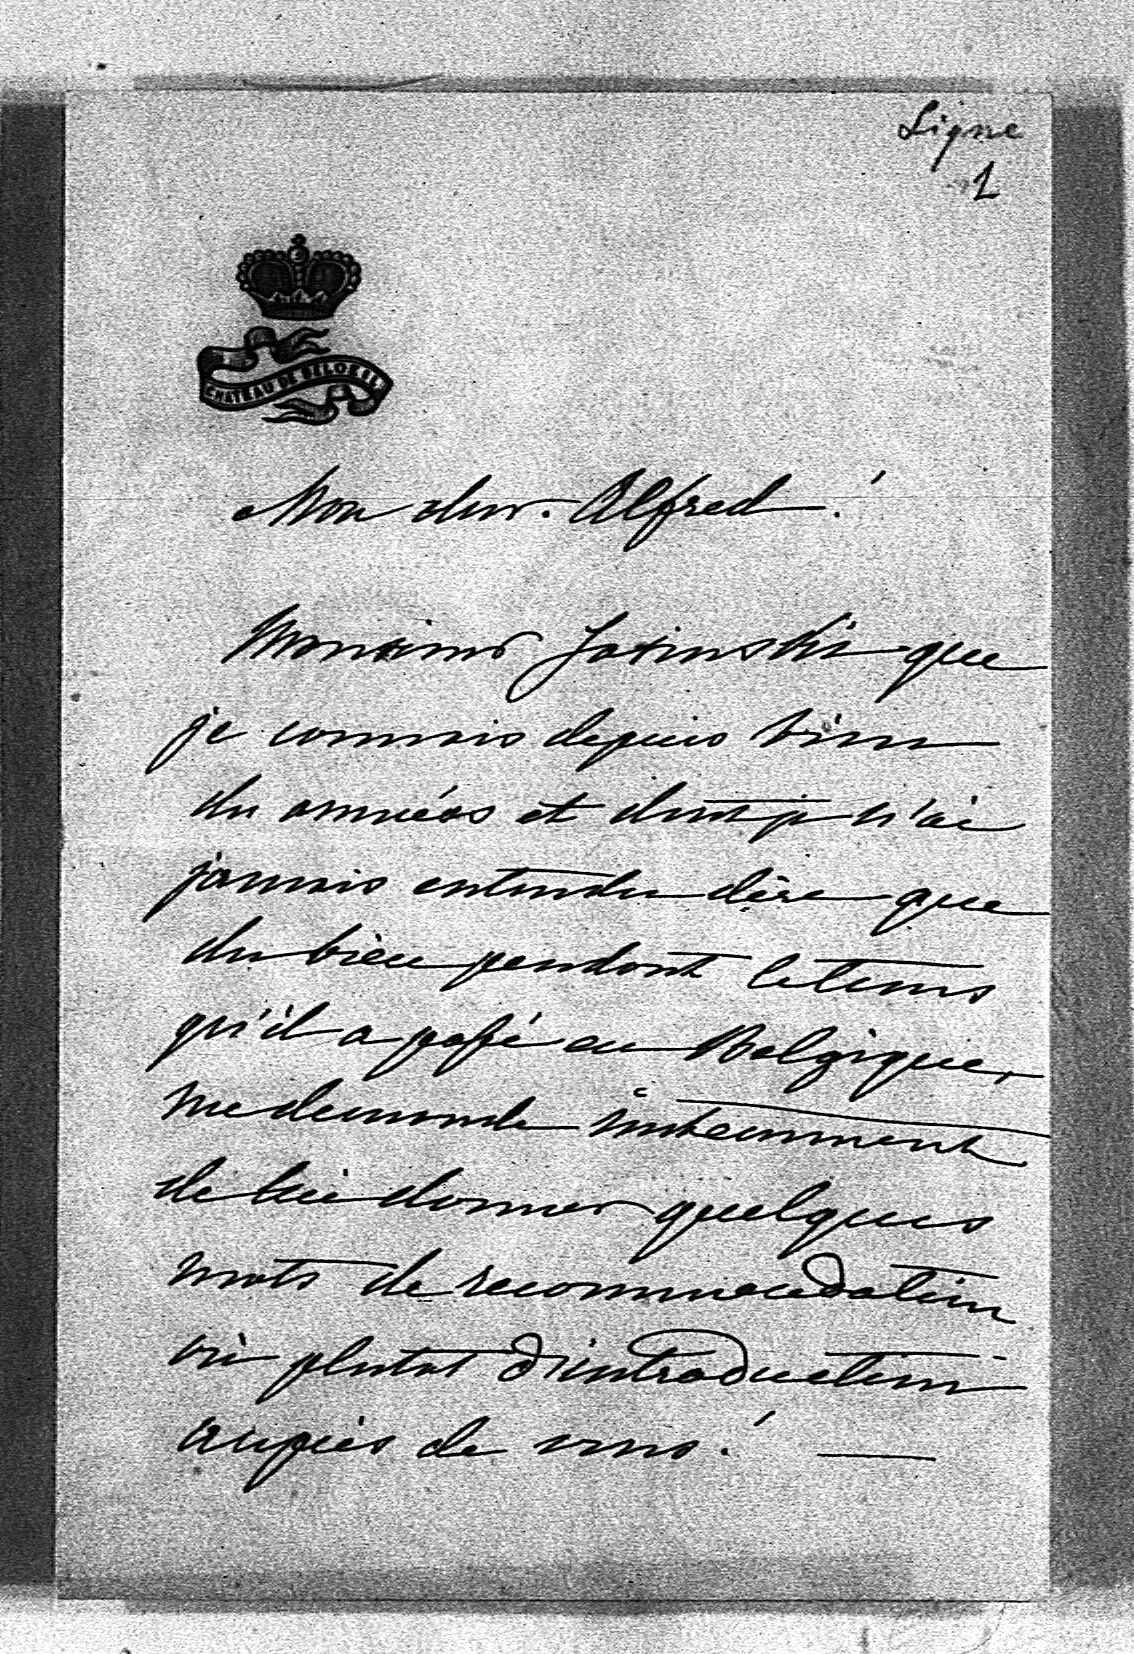 Ligne
1
CHATEAU DE BELOEIL
Mon cher Alfred!
Monsieur que
je connais depuis bien
des années et dont je n'ai
jamais entendu dire que
du bien pendant le tems
qu'il a passé en Belgique,
me demande instamment
de lui donner quelques
mots de recommandation
ou plutot d'introduction
auprès de vous! —